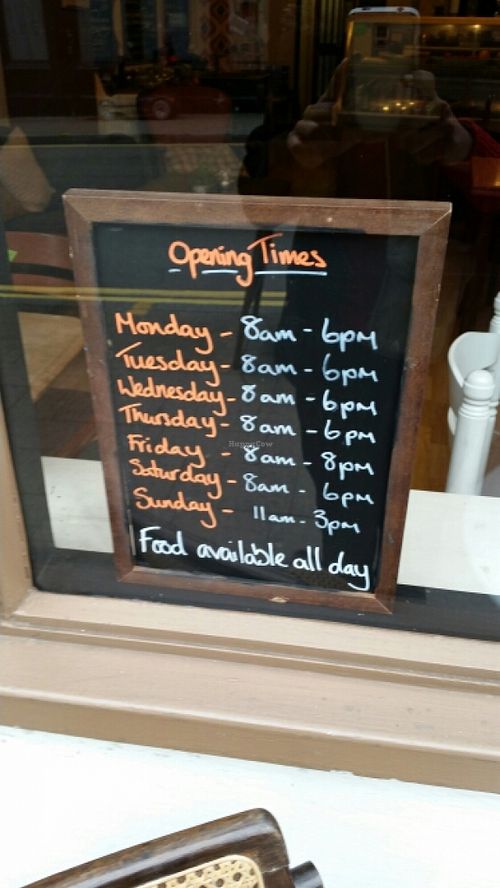 Opening Times
Monday - 8am - 6pm
Tuesday - 8am - 6pm
Wednesday - 8am - 6pm
Thursday - 8am - 6pm
Friday - 8am - 8pm
Saturday - 8am - 6pm
Sunday - 11am - 3pm
Food available all day
HappyCow